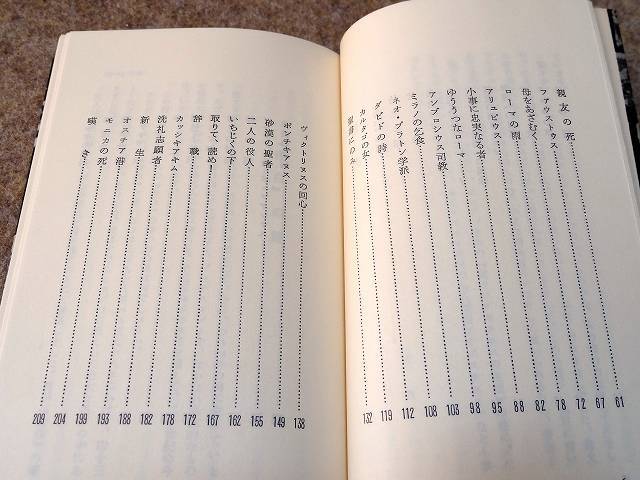 親友の死 61
ファウストゥス 67
母をあざむく 72
ローマの雨 78
アリュピウス 82
小事に忠実なる者 88
ゆううつなローマ 95
アンブロシウス司教 98
ミラノの乞食 103
ネオ・プラトン学派 108
ダビドの時 112
カルタゴの女 119
132
ヴィクトリヌスの回心 138
ポンチキアヌス 149
砂漠の聖者 155
二人の役人 162
いちじくの下 167
取りて、読め! 172
辞職 178
カッシキアキム 182
洗礼志願者 188
新生 193
オスチア港 199
モニカの死 204
209